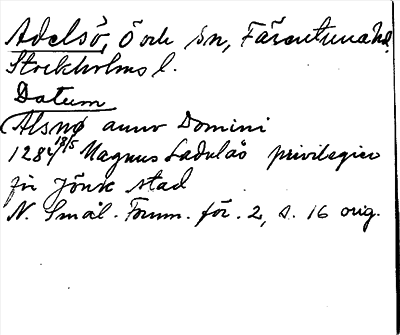 Adelsö, Ö och sn, Färentuna hd,
Stockholms l.
Datum
Alsnø anno Domini
1284 18/5 Magnus Ladulås privilegier
för Jönk stad
N. Smål. Fornm. för. 2, s. 16 orig.